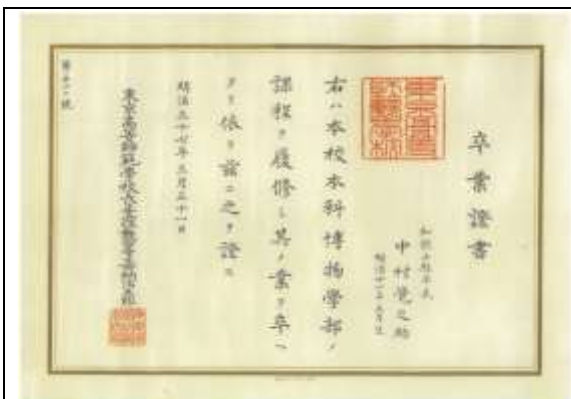 卒業證書
和歌山縣平民
中村覺之助
明治十一年五月生
右ハ本校本科博物學部ノ
課程ヲ履修シ其ノ業ヲ卒ヘ
タリ依リ茲ニ之ヲ證ス
明治三十七年三月三十一日
東京高等師範學校長